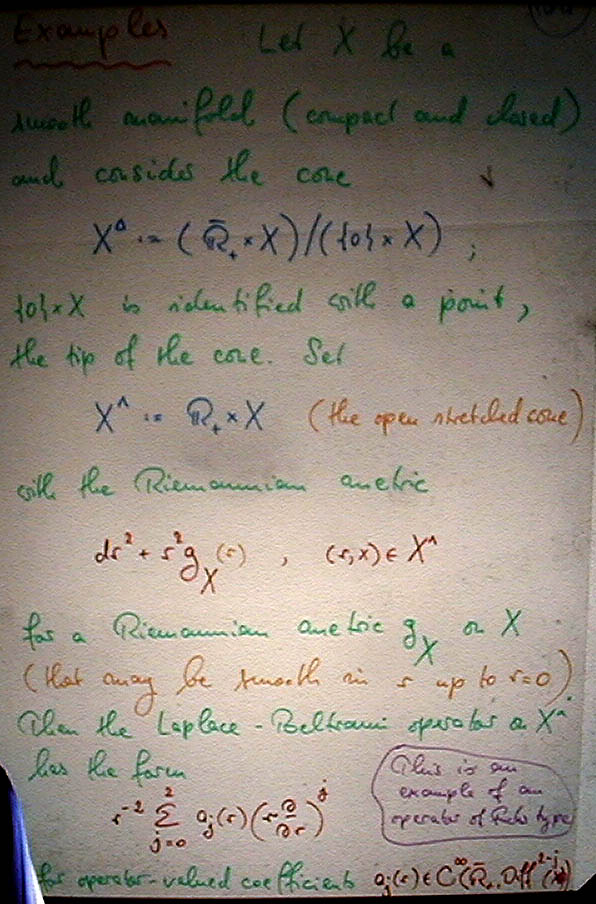 Examples Let X be a
smooth manifold (compact and closed)
and consider the cone
X^Δ := (ℝ̄₊ × X)/({0} × X) ;
{0}×X is identified with a point,
the tip of the cone. Set
X^∧ := ℝ₊ × X (the open stretched cone)
with the Riemannian metric
dr² + r² g_X(r) , (r,x) ∈ X^∧
for a Riemannian metric g_X on X
(that may be smooth in r up to r=0).
Then the Laplace-Beltrami operator on X^∧
has the form
r⁻² Σ_{j=0}^{2} a_j(r) (r ∂/∂r)^j
This is an
example of an
operator of Fuchs type
for operator-valued coefficients a_j(r) ∈ C^∞(ℝ̄₊, Diff^{2-j}(X))